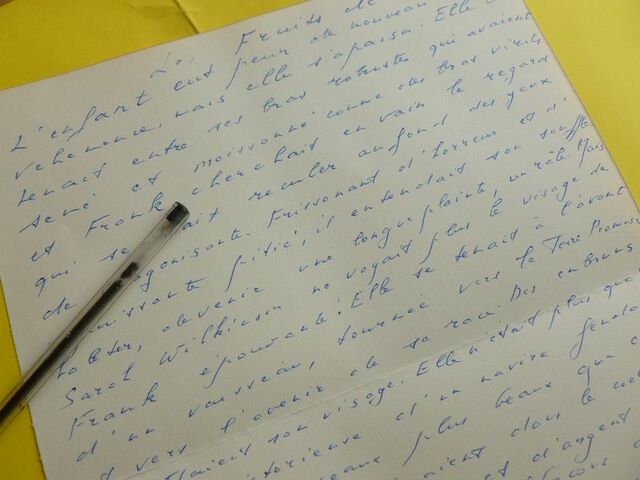 Les Fruits de
L'enfant eut peur de nouveau
véhémence, mais elle s'apaisa. Elle
tenait entre ses bras robustes qui avaient
semé et moissonné comme des bras virils
et Frank cherchait en vain le regard
qui reculer au fond des yeux
de agonisante. Frissonant d'horreur et
pitié, il entendait son souffle
haleter, devenir une longue plainte, un râle. Mais
Sarah Wilkinson ne voyait plus le visage de
Frank épouvanté. Elle se tenait à l'avant
d'un vaisseau, tournée vers la Terre Promise
et vers l'avenir de sa race. Des embruns
son visage. Elle n'était plus que
d'un navire
plus beaux que
dans le
d'argent